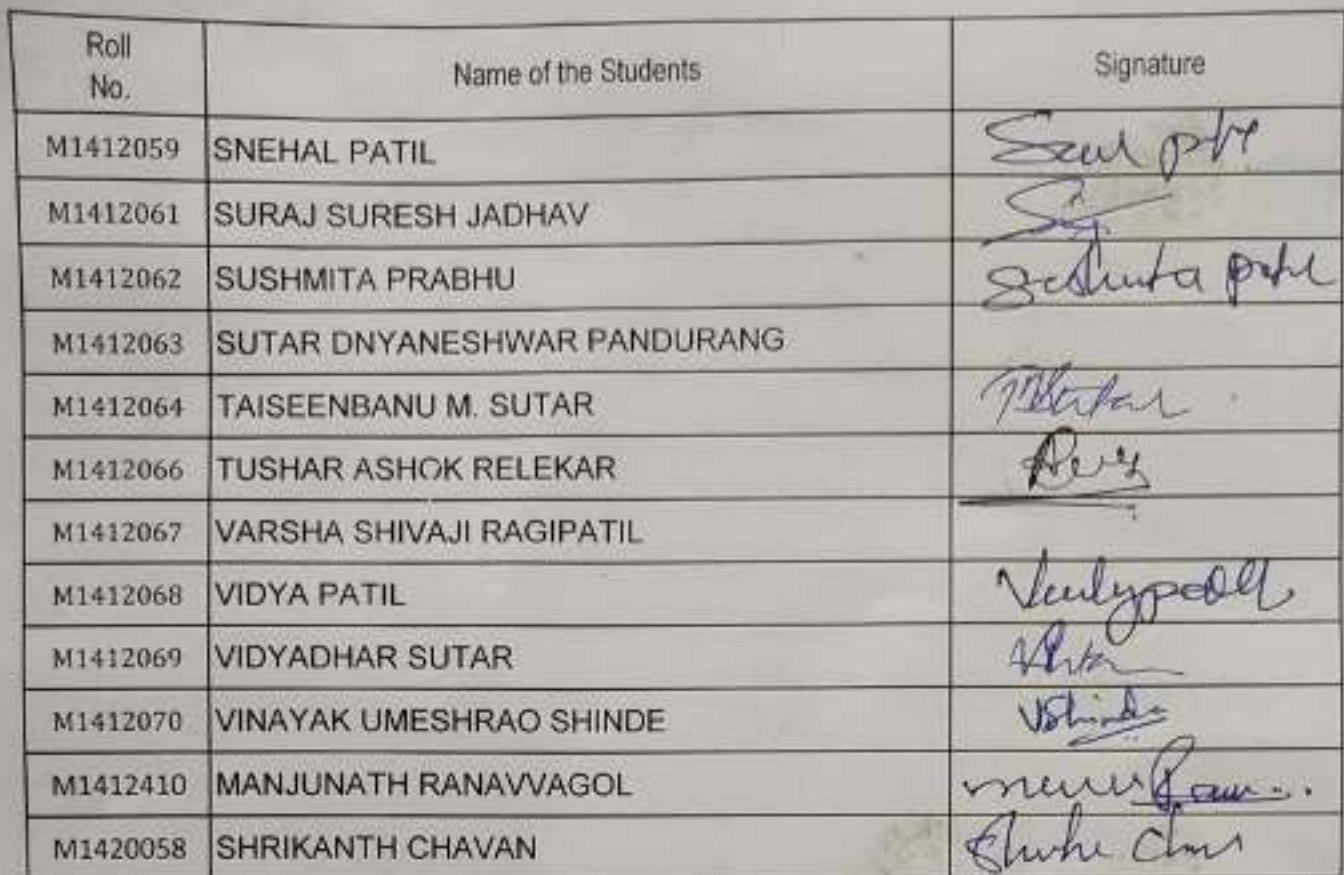 Roll No. Name of the Students Signature
M1412059 SNEHAL PATIL
M1412061 SURAJ SURESH JADHAV
M1412062 SUSHMITA PRABHU
M1412063 SUTAR DNYANESHWAR PANDURANG
M1412064 TAISEENBANU M. SUTAR
M1412066 TUSHAR ASHOK RELEKAR
M1412067 VARSHA SHIVAJI RAGIPATIL
M1412068 VIDYA PATIL
M1412069 VIDYADHAR SUTAR
M1412070 VINAYAK UMESHRAO SHINDE VShinde
M1412410 MANJUNATH RANAVVAGOL
M1420058 SHRIKANTH CHAVAN